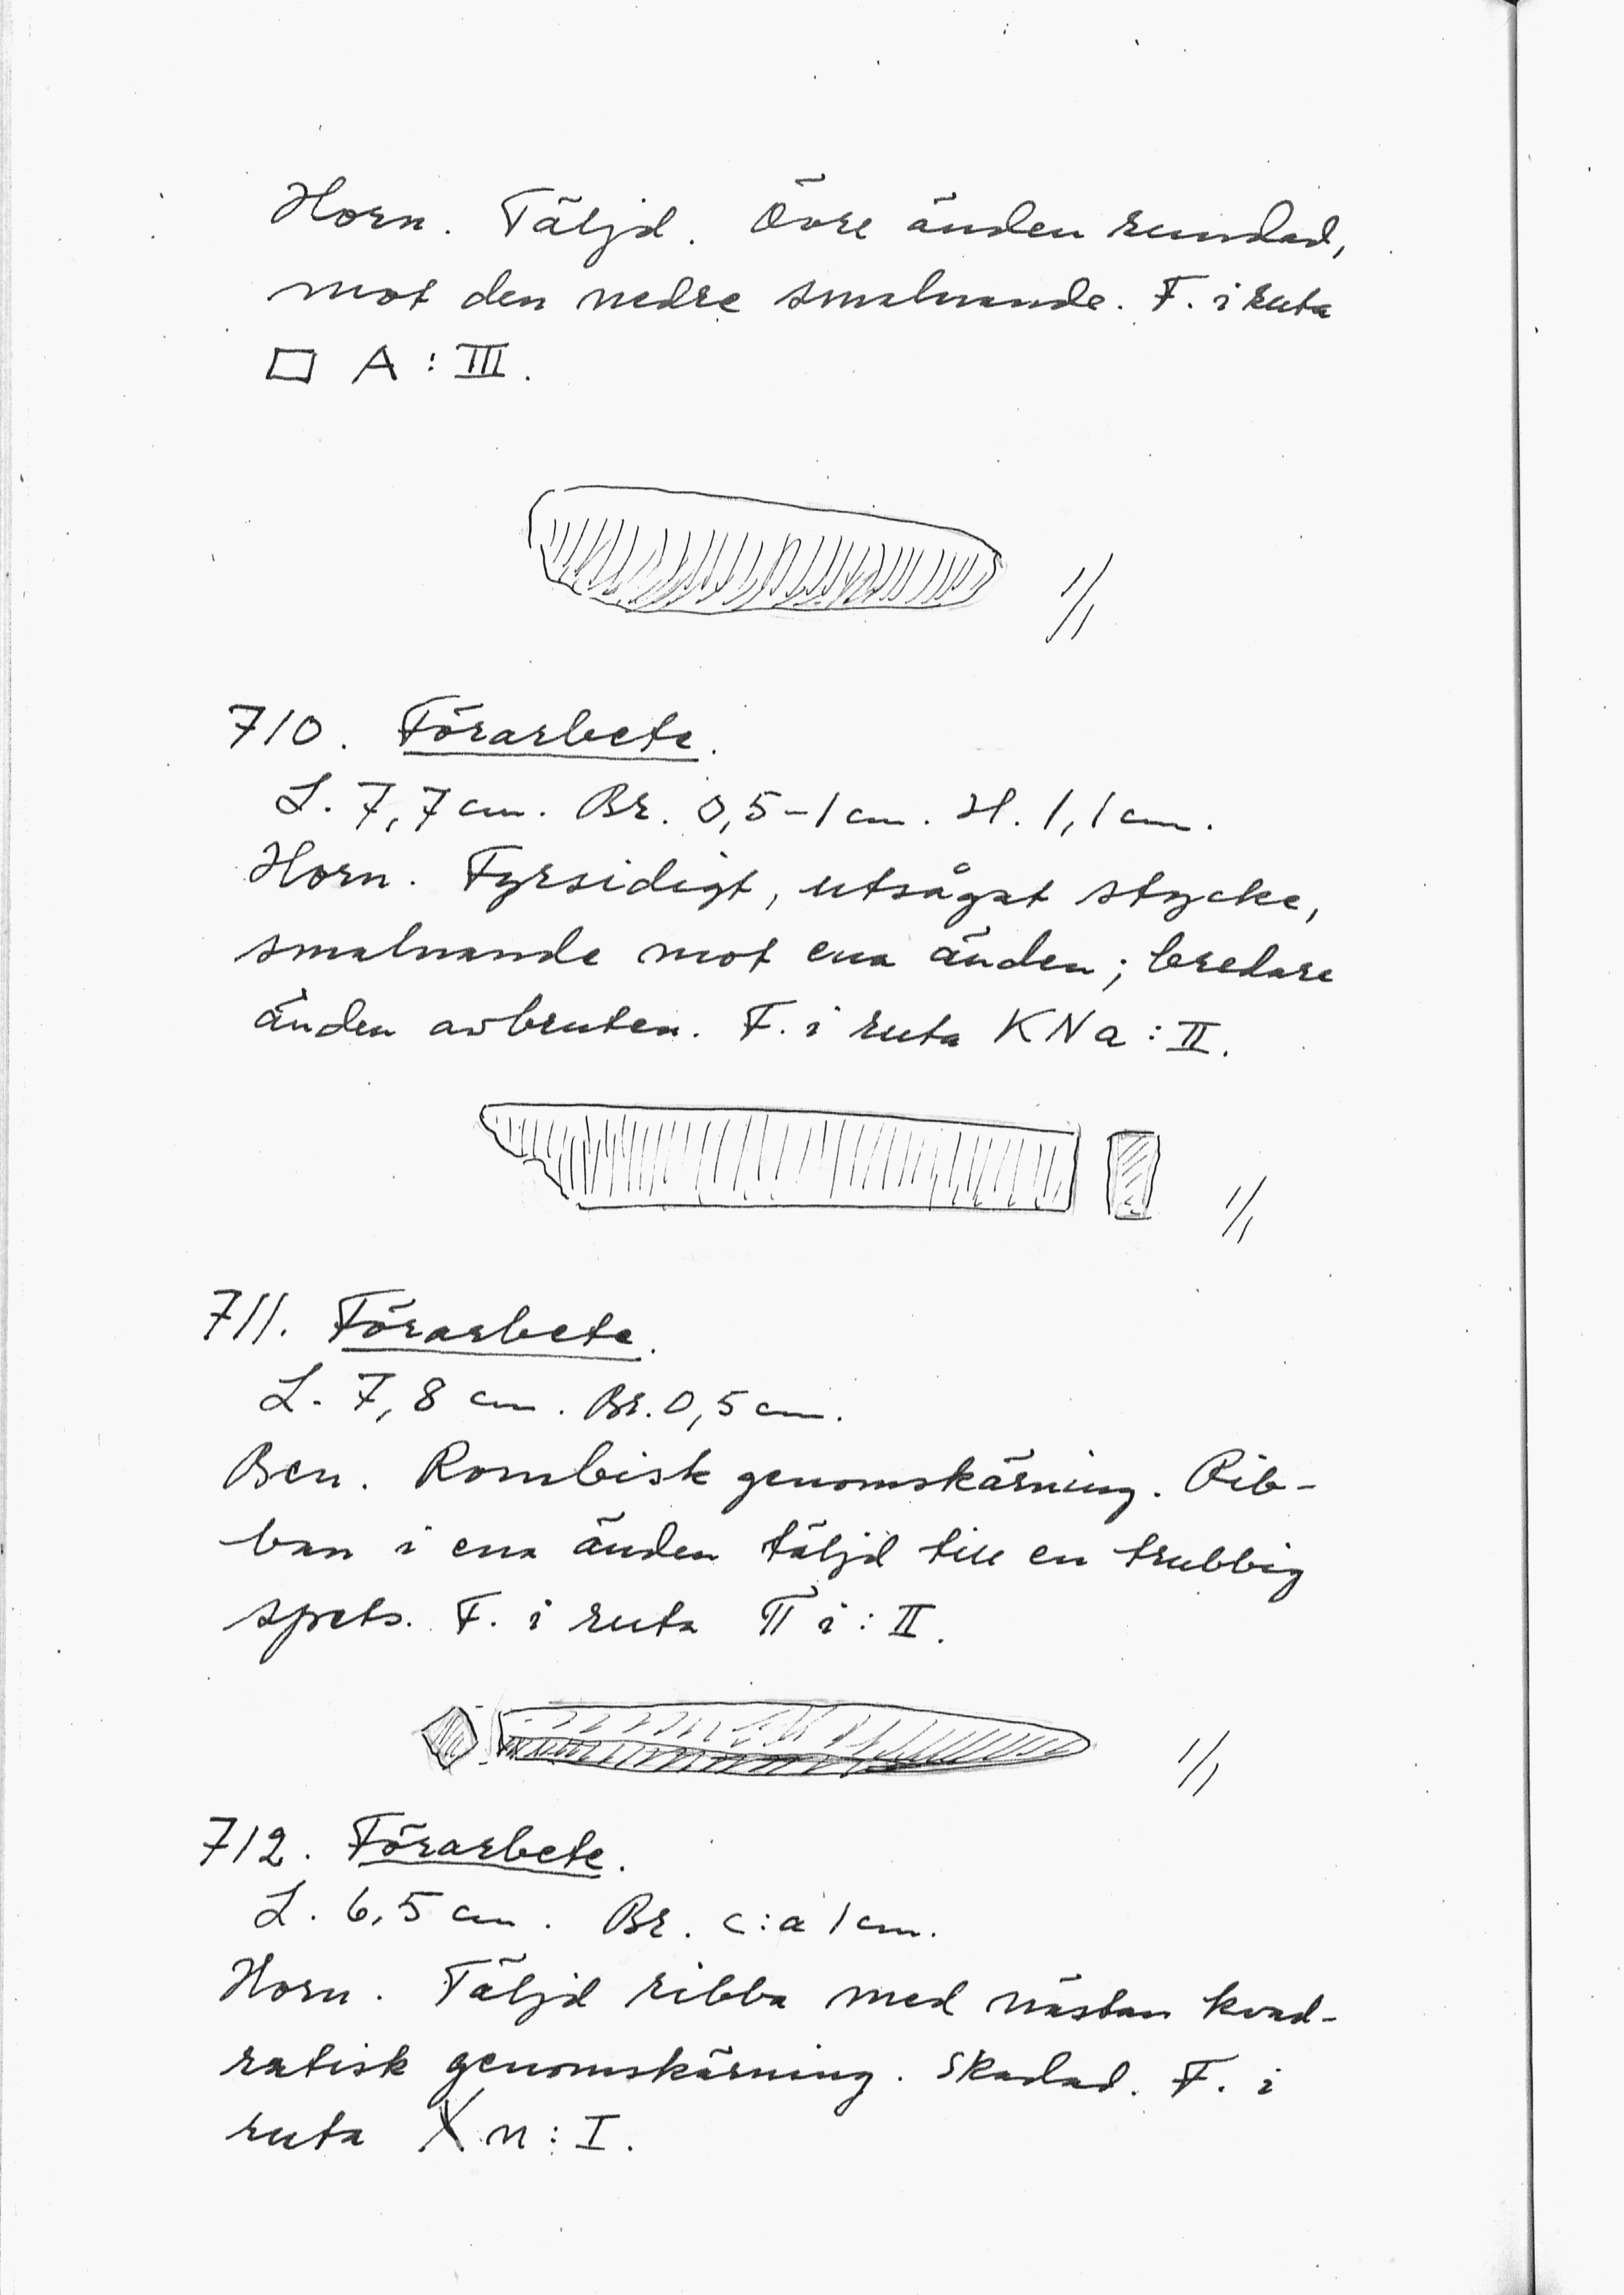 Horn. Täljd. Övre änden rundad,
mot den nedre smalnande. F. i ruta
□ A : III.
1/1
710. Förarbete.
L. 7,7 cm. Br. 0,5-1 cm. H. 1,1 cm.
Horn. Fyrsidigt, utsågat stycke,
smalnande mot ena änden; bredare
änden avbruten. F. i ruta KNa : II.
1/1
711. Förarbete.
L. 7,8 cm. Br. 0,5 cm.
Ben. Rombisk genomskärning. Rib-
ban i ena änden täljd till en trubbig
spets. F. i ruta π i : II.
1/1
712. Förarbete.
L. 6,5 cm. Br. c:a 1 cm.
Horn. Täljd ribba med nästan kvad-
ratisk genomskärning. Skadad. F. i
ruta X n : I.